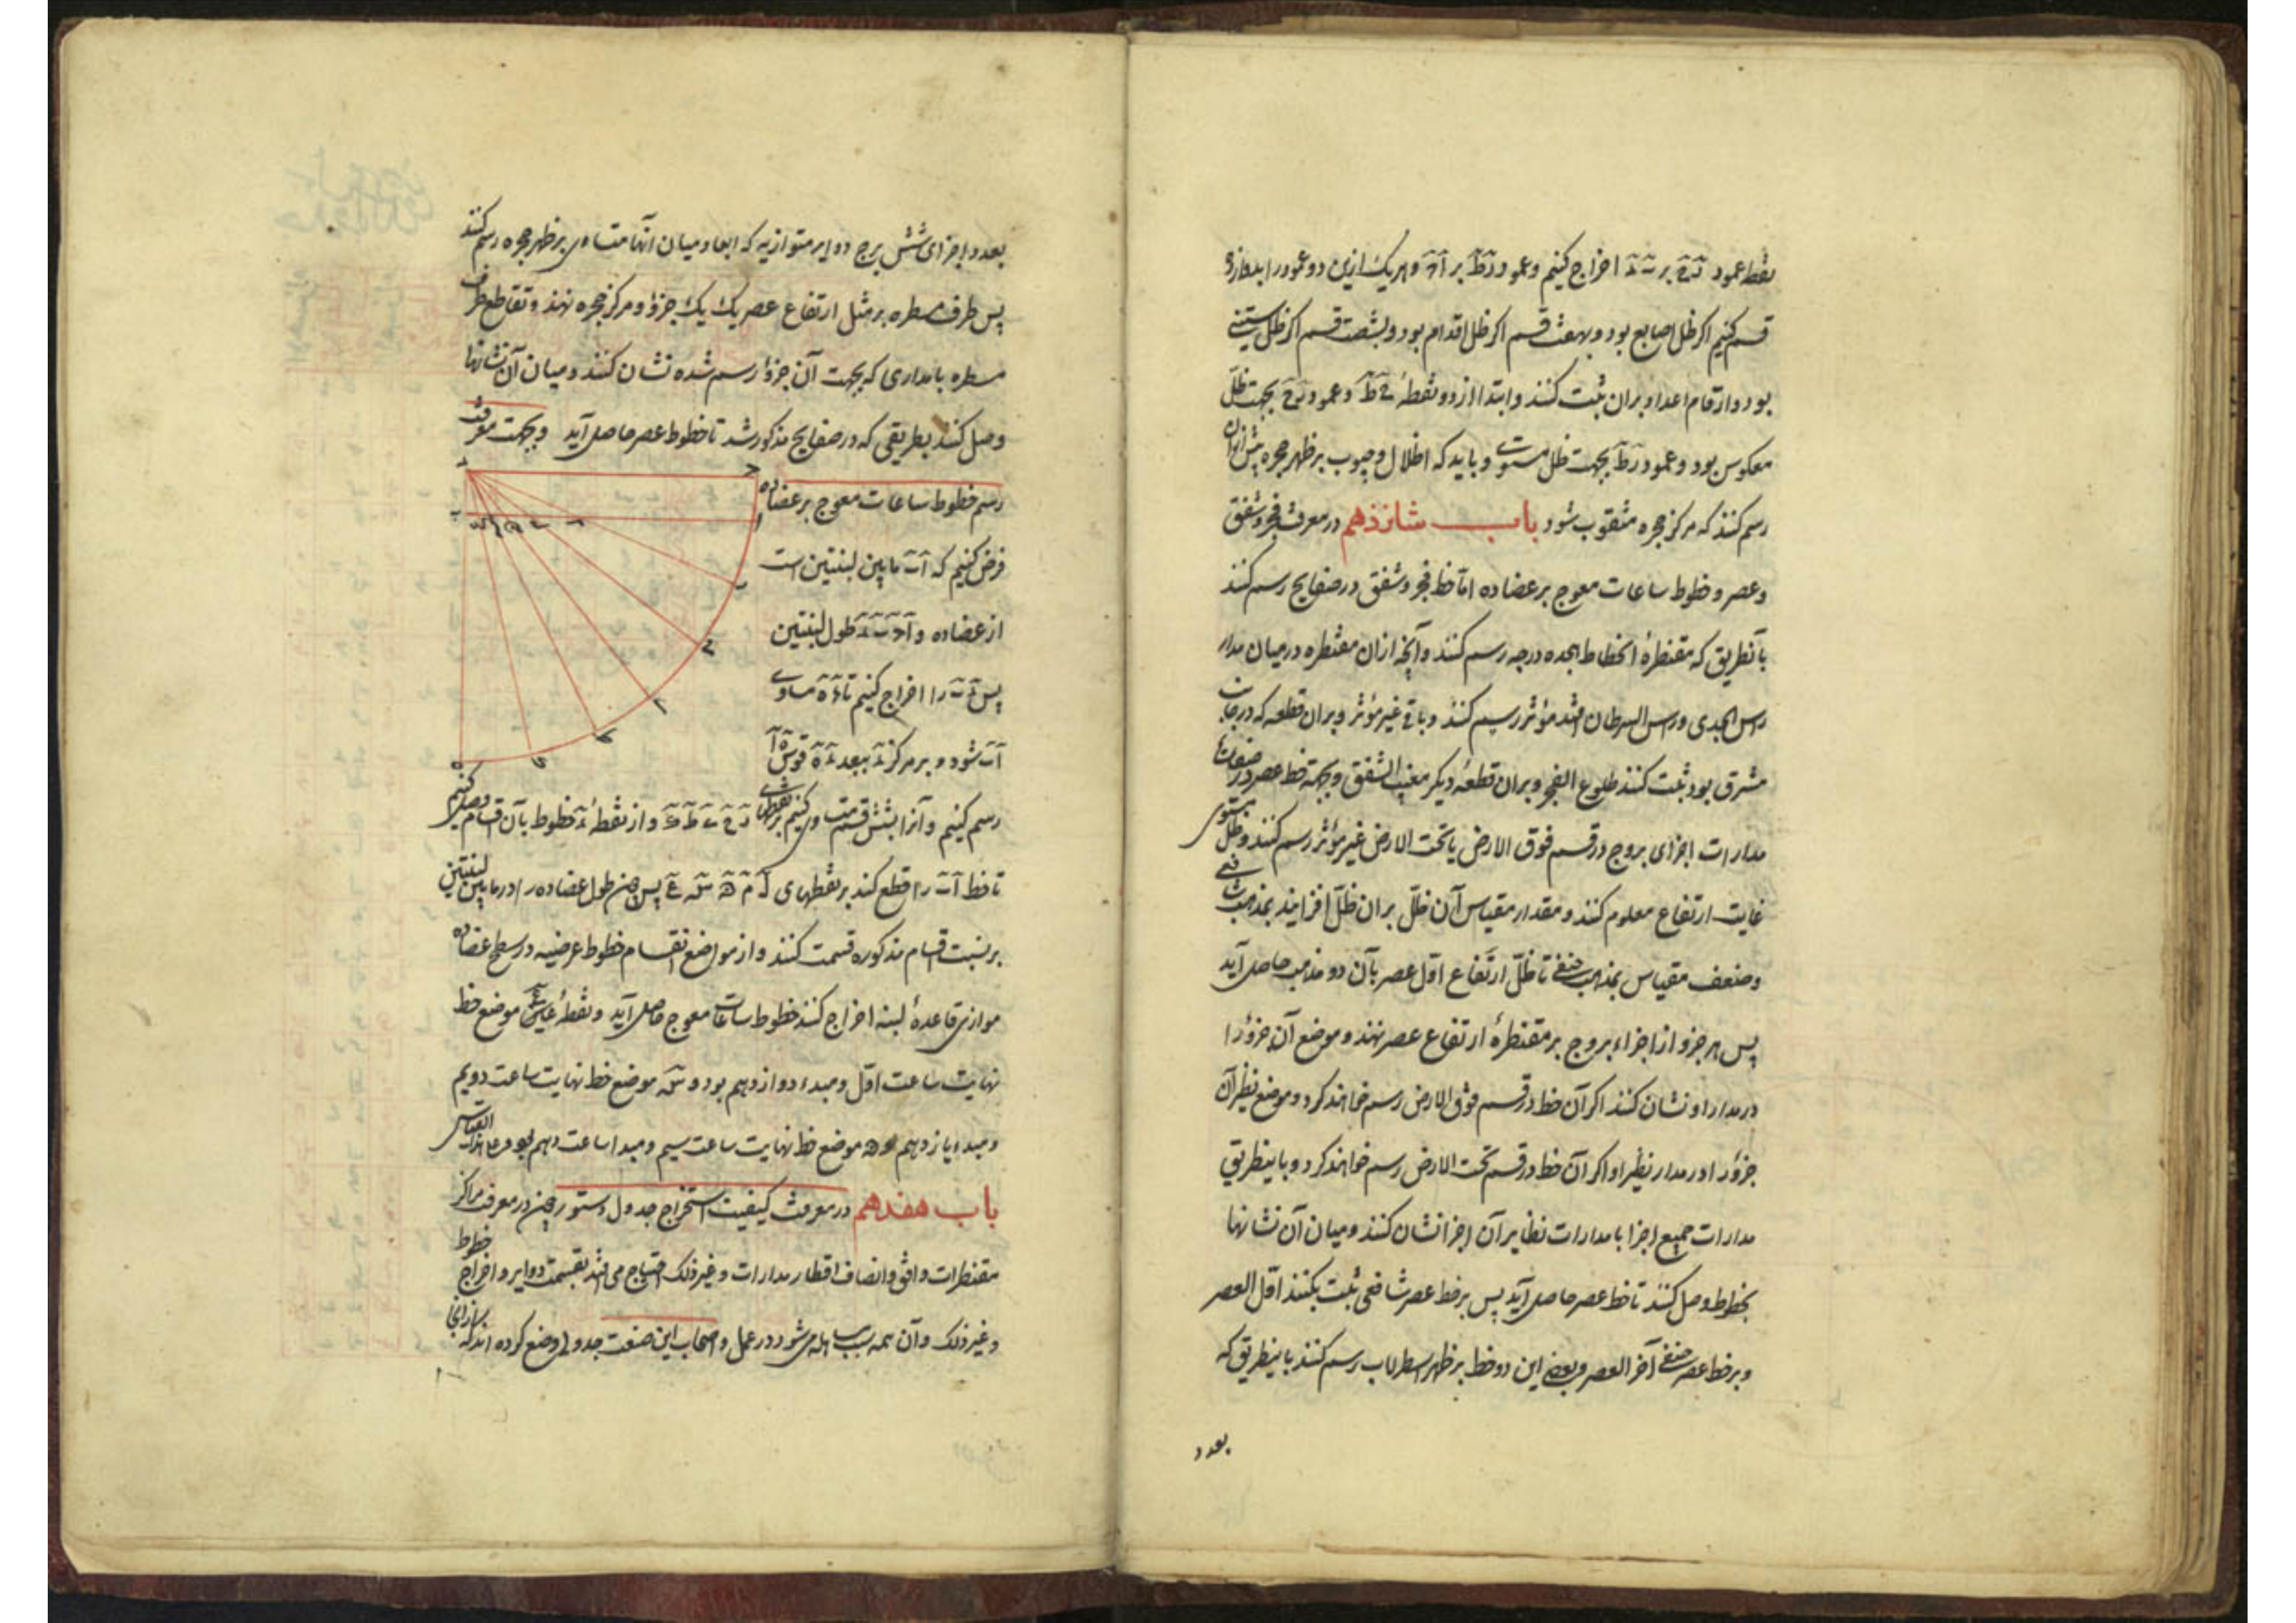 نقطه عمود ز ح بر ب د اخراج کنیم و عمود ز ط بر ا ج و هر یک ازین دو عمود را بدوازده
قسم کنیم اگر ظل اصابع بود و بهفت قسم اگر ظل اقدام بود و بشصت قسم اگر ظل ستینی
بود و ارقام اعداد بران ثبت کنند و ابتدا از دو نقطهٔ ح ط و عمود ز ح بجهت ظل
معکوس بود و عمود ز ط بجهت ظل مستوی و باید که اظلال و جیوب بر ظهر حجره پیش ازان
رسم کنند که مرکز حجره مثقوب شود باب شانزدهم در معرفت فجر و شفق
و عصر و خطوط ساعات معوج بر عضاده اما خط فجر و شفق در صفایح رسم کنند
بآنطریق که مقنطرهٔ انحطاط هجده درجه رسم کنند و آنچه ازان مقنطره در میان مدار
راس الجدی و راس السرطان افتد مؤثر رسم کنند و باقی غیر مؤثر و بران قطعه که در جانب
مشرق بود ثبت کنند طلوع الفجر و بران قطعهٔ دیگر مغیب الشفق و بجهة خط عصر در صفیحها
مدارات اجزای بروج در قسم فوق الارض یا تحت الارض غیر مؤثر رسم کنند و ظل مستوی
غایت ارتفاع معلوم کنند و مقدار مقیاس آن ظل بران ظل افزایند بمذهب شافعی
و ضعف مقیاس بمذهب حنفی تا ظل ارتفاع اول عصر بآن دو مذهب حاصل آید
پس هر جزو از اجزاء بروج بر مقنطرهٔ ارتفاع عصر نهند و موضع آن جزؤ را
در مدار او نشان کنند اگر آن خط در قسم فوق الارض رسم خواهند کرد و موضع نظیر آن
جزؤ را در مدار نظیر او اگر آن خط در قسم تحت الارض رسم خواهند کرد و باینطریق
مدارات جمیع اجزا یا مدارات نظایر آن اجزا نشان کنند و میان آن نشانها
بخطوط وصل کنند تا خط عصر حاصل آید پس بر خط عصر شافعی ثبت بکنند اول العصر
و بر خط عصر حنفی آخر العصر و بعضی این دو خط بر ظهر اسطرلاب رسم کنند باینطریق که
بعدد
بعدد اجزای شش برج دوایر متوازیه که ابعاد میان آنها متساوی بر ظهر حجره رسم کنند
پس طرف مسطره بر مثل ارتفاع عصر یک یک جزؤ و مرکز حجره نهند و تقاطع طرف
مسطره با مداری که بجهت آن جزؤ رسم شده نشان کنند و میان آن نشانها
وصل کنند بطریقی که در صفایح مذکور شد تا خطوط عصر حاصل آید و بجهت معرفت
رسم خطوط ساعات معوج بر عضاده
فرض کنیم که ا ب ما بین لبنتین است
از عضاده و ا ج ب د طول لبنتین
پس د ب را اخراج کنیم تا د ه مساوی
ا ب شود و بر مرکز د ببعد د ه قوس ه ا
رسم کنیم و آنرا بشش قسم متساوی کنیم بر نقطهای ز ح ی ط ک و از نقطهٔ د خطوط بآن اقسام وصل کنیم
تا خط ا ب را قطع کند بر نقطهای ل م ن س ع پس طول عضاده را در ما بین لبنتین
بر نسبت اقسام مذکوره قسمت کنند و از مواضع انقسام خطوط عرضیه در سطح عضاده
موازی قاعدهٔ لبنه اخراج کنند خطوط ساعات معوج حاصل آید و نقطهٔ ع موضع خط
نهایت ساعت اول و مبدء دوازدهم بود و س موضع خط نهایت ساعت دویم
و مبدء یازدهم و ن موضع خط نهایت ساعت سیم و مبدا ساعت دهم بود و علی هذا القیاس
باب هفدهم در معرفت کیفیت استخراج جدول دستور چون در معرفت مراکز
مقنطرات و افق و انصاف اقطار مدارات و غیر ذلک احتیاج می افتد بقسمت دوایر و اخراج خطوط
و غیر ذلک و آن همه سبب مساهله می شود در عمل و اصحاب این صنعت جدولی وضع کرده اند که از آنجا